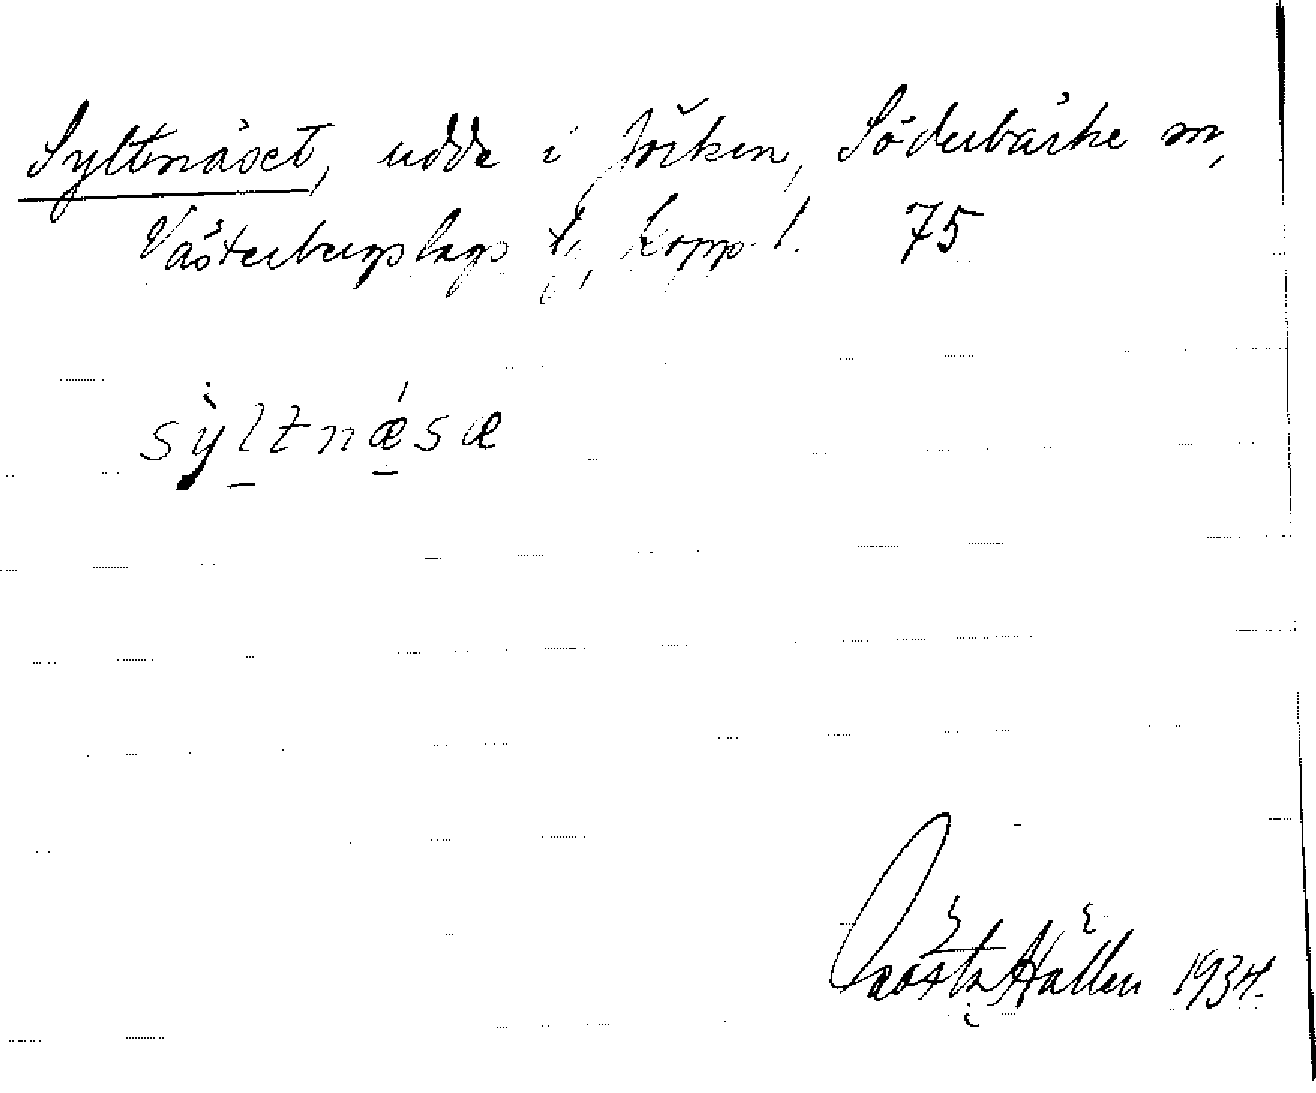 Syltnäset, udde i Jörken, Söderbärke sn,
Västerbergslags t., Kopp. l. 75
sỳltnǽsæ
Gösta Hållen 1934.